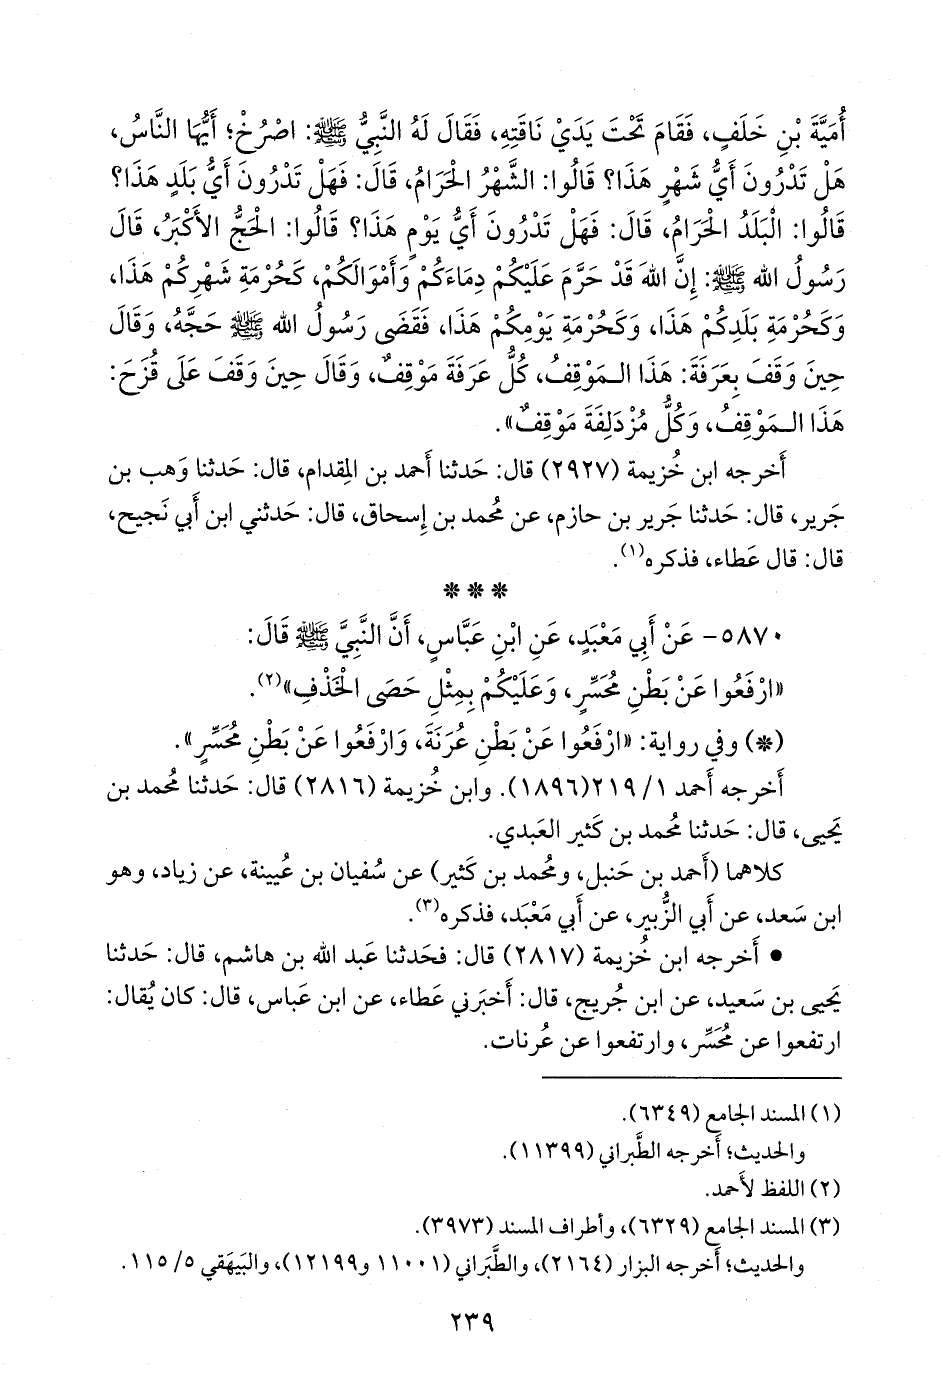 أُمَيَّةَ بْنِ خَلَفٍ، فَقَامَ تَحْتَ يَدَيْ نَاقَتِهِ، فَقَالَ لَهُ النَّبِيُّ ﷺ: اصْرُخْ؛ أَيُّهَا النَّاسُ،
هَلْ تَدْرُونَ أَيُّ شَهْرٍ هَذَا؟ قَالُوا: الشَّهْرُ الْحَرَامُ، قَالَ: فَهَلْ تَدْرُونَ أَيُّ بَلَدٍ هَذَا؟
قَالُوا: الْبَلَدُ الْحَرَامُ، قَالَ: فَهَلْ تَدْرُونَ أَيُّ يَوْمٍ هَذَا؟ قَالُوا: الْحَجُّ الأَكْبَرُ، قَالَ
رَسُولُ الله ﷺ: إِنَّ اللهَ قَدْ حَرَّمَ عَلَيْكُمْ دِمَاءَكُمْ وَأَمْوَالَكُمْ، كَحُرْمَةِ شَهْرِكُمْ هَذَا،
وَكَحُرْمَةِ بَلَدِكُمْ هَذَا، وَكَحُرْمَةِ يَوْمِكُمْ هَذَا، فَقَضَى رَسُولُ الله ﷺ حَجَّهُ، وَقَالَ
حِينَ وَقَفَ بِعَرَفَةَ: هَذَا الـمَوْقِفُ، كُلُّ عَرَفَةَ مَوْقِفٌ، وَقَالَ حِينَ وَقَفَ عَلَى قُزَحَ:
هَذَا الـمَوْقِفُ، وَكُلُّ مُزْدَلِفَةَ مَوْقِفٌ».
أَخرجه ابن خُزيمة (٢٩٢٧) قال: حَدثنا أَحمد بن المِقدام، قال: حَدثنا وَهب بن
جَرير، قال: حَدثنا جَرير بن حازم، عن مُحمد بن إِسحاق، قال: حَدثني ابن أَبي نَجيح،
قال: قال عَطاء، فذكره(١).
* * *
٥٨٧٠- عَنْ أَبِي مَعْبَدٍ، عَنِ ابْنِ عَبَّاسٍ، أَنَّ النَّبِيَّ ﷺ قَالَ:
«ارْفَعُوا عَنْ بَطْنِ مُحَسِّرٍ، وَعَلَيْكُمْ بِمِثْلِ حَصَى الْخَذْفِ»(٢).
(*) وفي رواية: «ارْفَعُوا عَنْ بَطْنِ عُرَنَةَ، وَارْفَعُوا عَنْ بَطْنِ مُحَسِّرٍ».
أَخرجه أَحمد ١/ ٢١٩(١٨٩٦). وابن خُزيمة (٢٨١٦) قال: حَدثنا مُحمد بن
يَحيى، قال: حَدثنا مُحمد بن كَثير العَبدي.
كلاهما (أَحمد بن حَنبل، ومُحمد بن كَثير) عن سُفيان بن عُيينة، عن زياد، وهو
ابن سَعد، عن أَبي الزُّبير، عن أَبي مَعْبَد، فذكره(٣).
• أَخرجه ابن خُزيمة (٢٨١٧) قال: فحَدثنا عَبد الله بن هاشم، قال: حَدثنا
يَحيى بن سَعيد، عن ابن جُريج، قال: أَخبَرني عَطاء، عن ابن عَباس، قال: كان يُقال:
ارتفعوا عن مُحَسِّر، وارتفعوا عن عُرنات.
(١) المسند الجامع (٦٣٤٩).
والحديث؛ أَخرجه الطَّبراني (١١٣٩٩).
(٢) اللفظ لأَحمد.
(٣) المسند الجامع (٦٣٢٩)، وأطراف المسند (٣٩٧٣).
والحديث؛ أَخرجه البزار (٢١٦٤)، والطَّبَراني (١١٠٠١ و١٢١٩٩)، والبَيهَقي ٥/ ١١٥.
٢٣٩